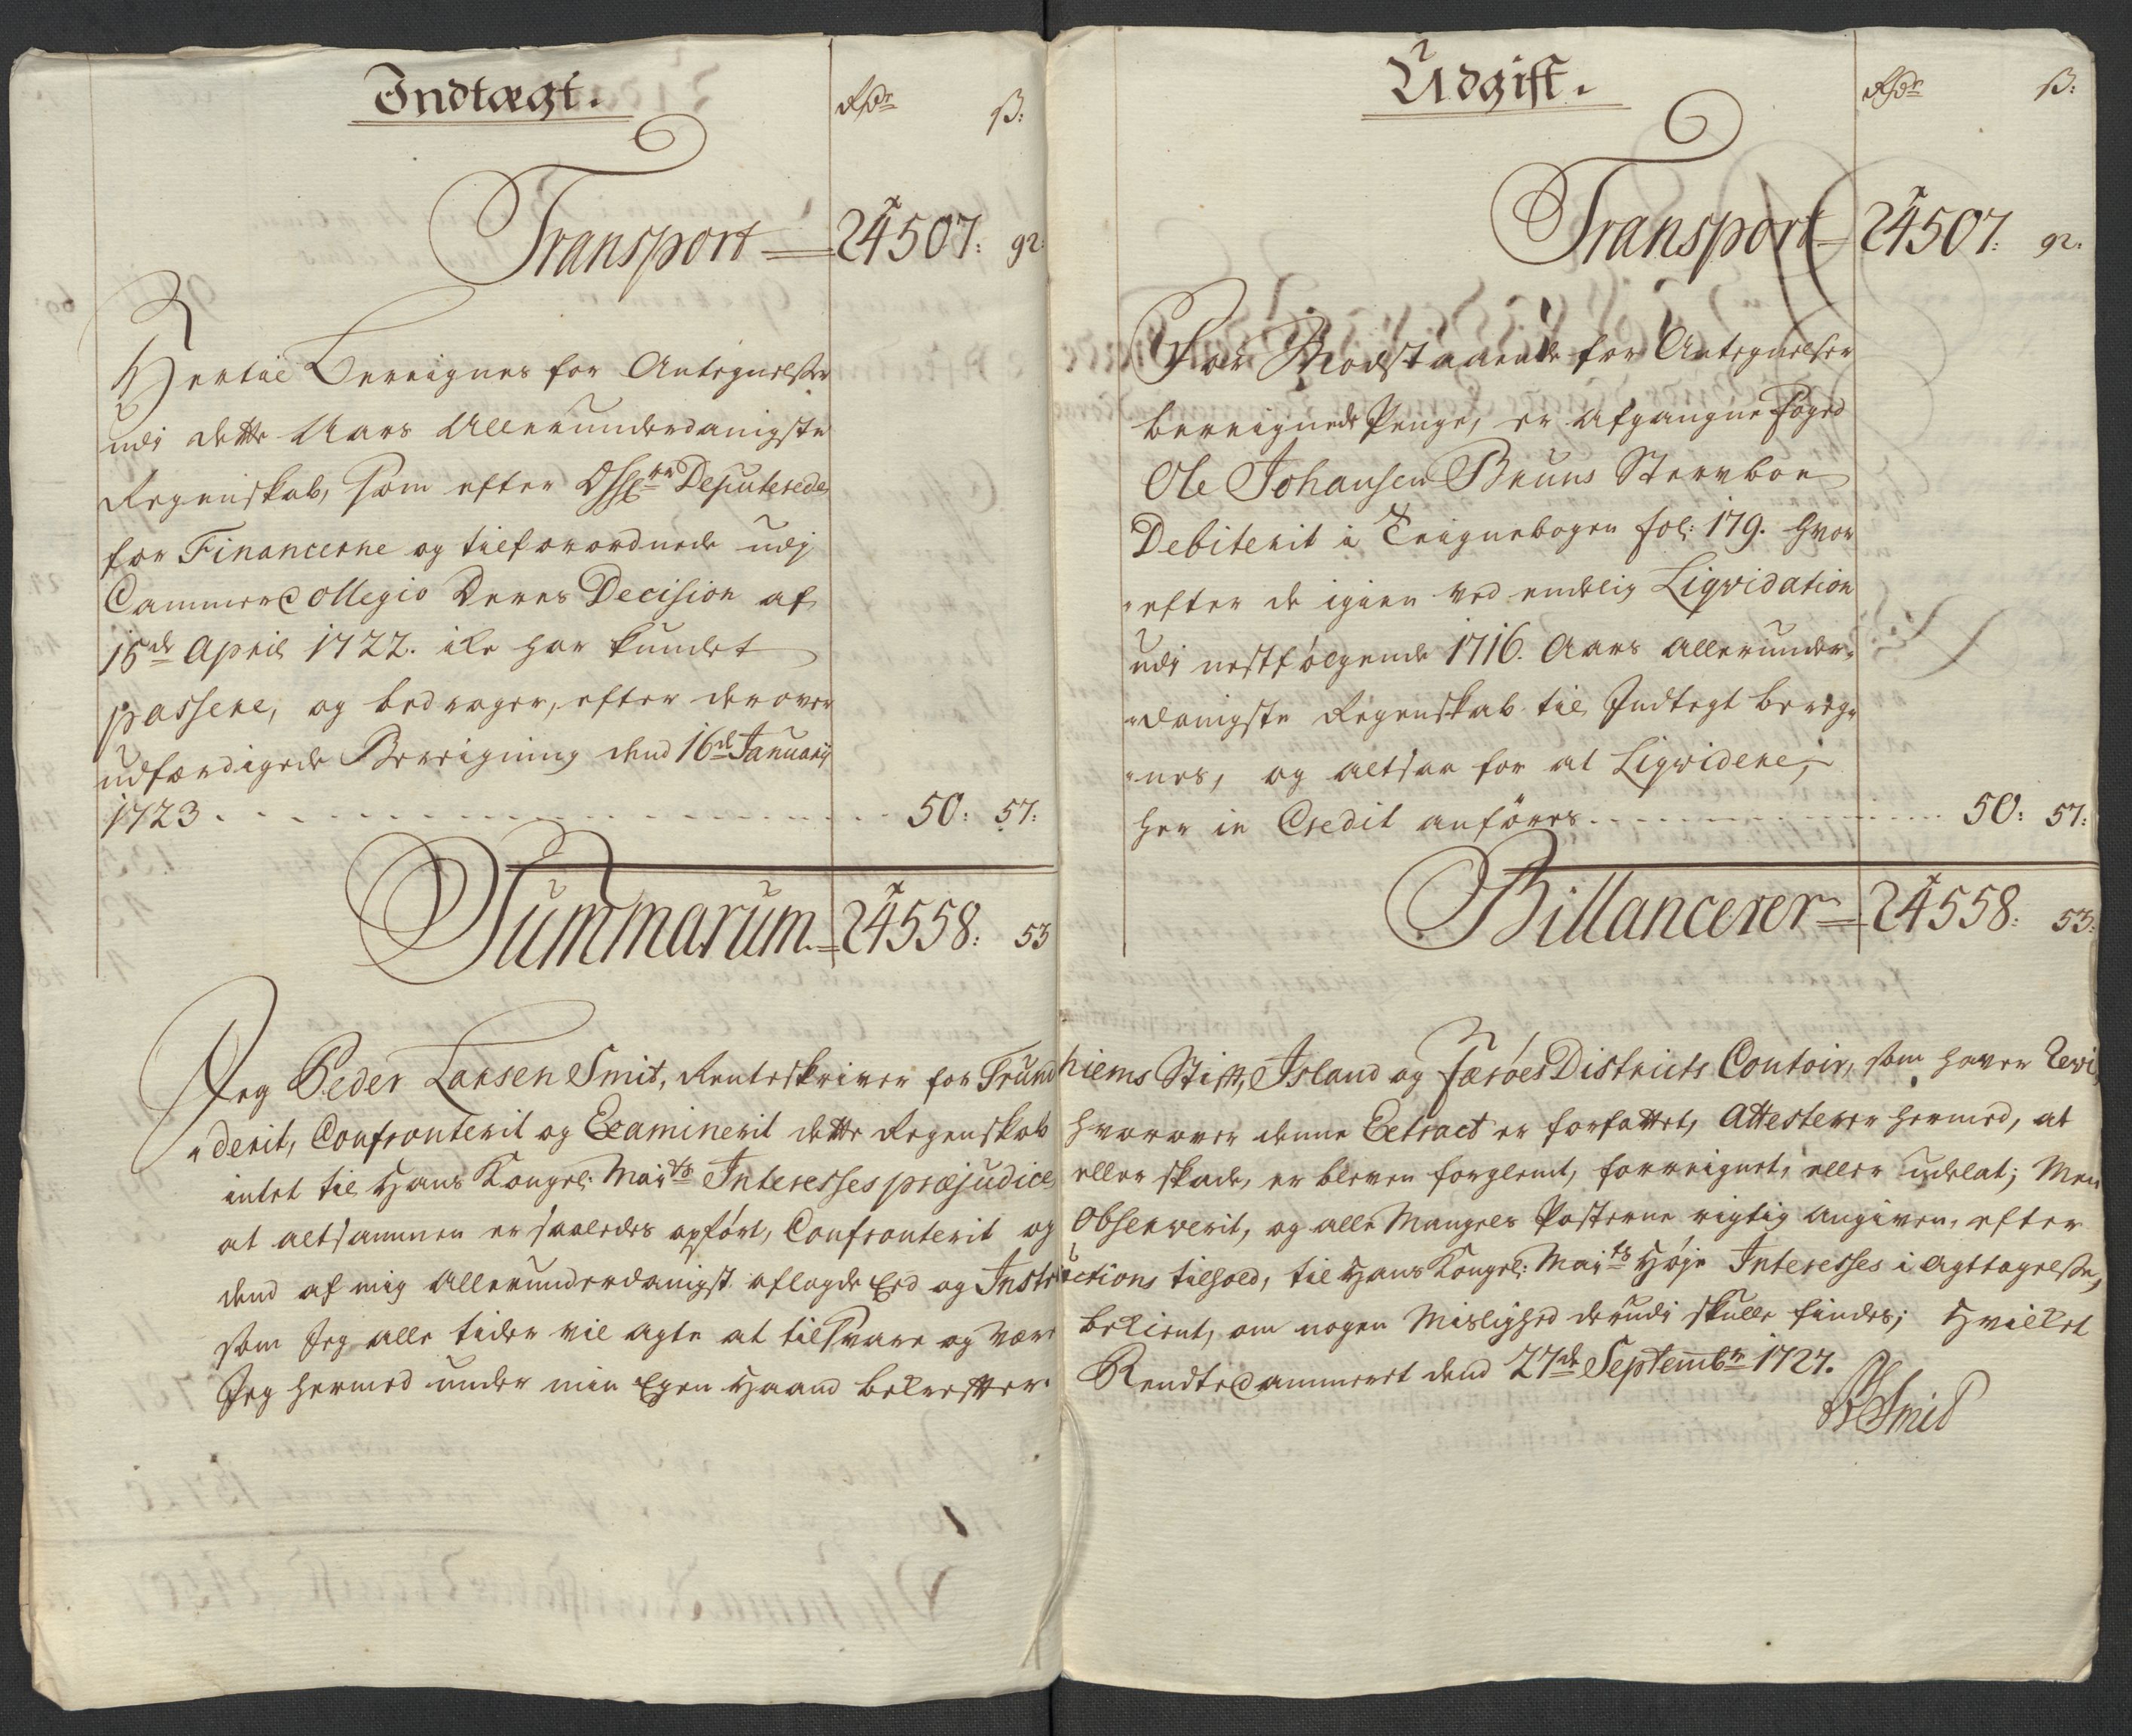 Indtægt.
Rdr ß:
Transport 24507: 92:
Hertil Bereignes for Antegnelser
udi dette Aars Allerunderdanigste
Regenskab, som efter Deputerede
for Financerne og tilforordnede udj
CammerCollegio Deres Decision af
15de April 1722. ike har kundet
passere, og bedrager, efter derover
udferdigede Bereigning dend 16de Januarij
1723 50: 57:
Summarum 24558: 53
Udgift.
Rdr ß:
Transport 24507: 92.
For Modstaaende for Antegnelser
bereignede Penge, er afgangne foged
Ole Johansen Bruuns Sterboe
Debiterit i Teignebogen fol: 179. hvor
"efter de igien ved endelig Liqvidation
udi nestfølgende 1716. Aars allerunder„
"danigste Regenskab til Indtegt bereg„
"nes, og altsaa for at Liqvidere,
her in Credit anföres 50: 57:
Billancerer 24558: 53:
Jeg Peder Larsen Smit, Renteskriver for Trundhiems Stift, Island og Færöes Districts Contoir, som haver Revi„
"derit, Confronterit og Examinerit dette Regenskab hvorover denne Extract er forfattet, Attesterer hermed, at
intet til Hans Kongel: Maits Interesses præjudice eller skade, er bleven forglemt, forreignet, eller udelat; Men
at altsammen er saaledes opfört, Confronterit og Observerit, og alle Mangels Posterne rigtig angiven, efter
dend af mig allerunderdanigst aflagde Eed og Instructions tilhold, til Hans Kongel: Maits Høje Interesses i agttagelse,
som Jeg alle tider vil agte at tilsvare og være bekient, om nogen Mislighed derudi skulle findes; Hvilket
Jeg hermed under min Egen Haand bekrefter. RendteCammeret dend 27de Septembr 1727.
PLSmid